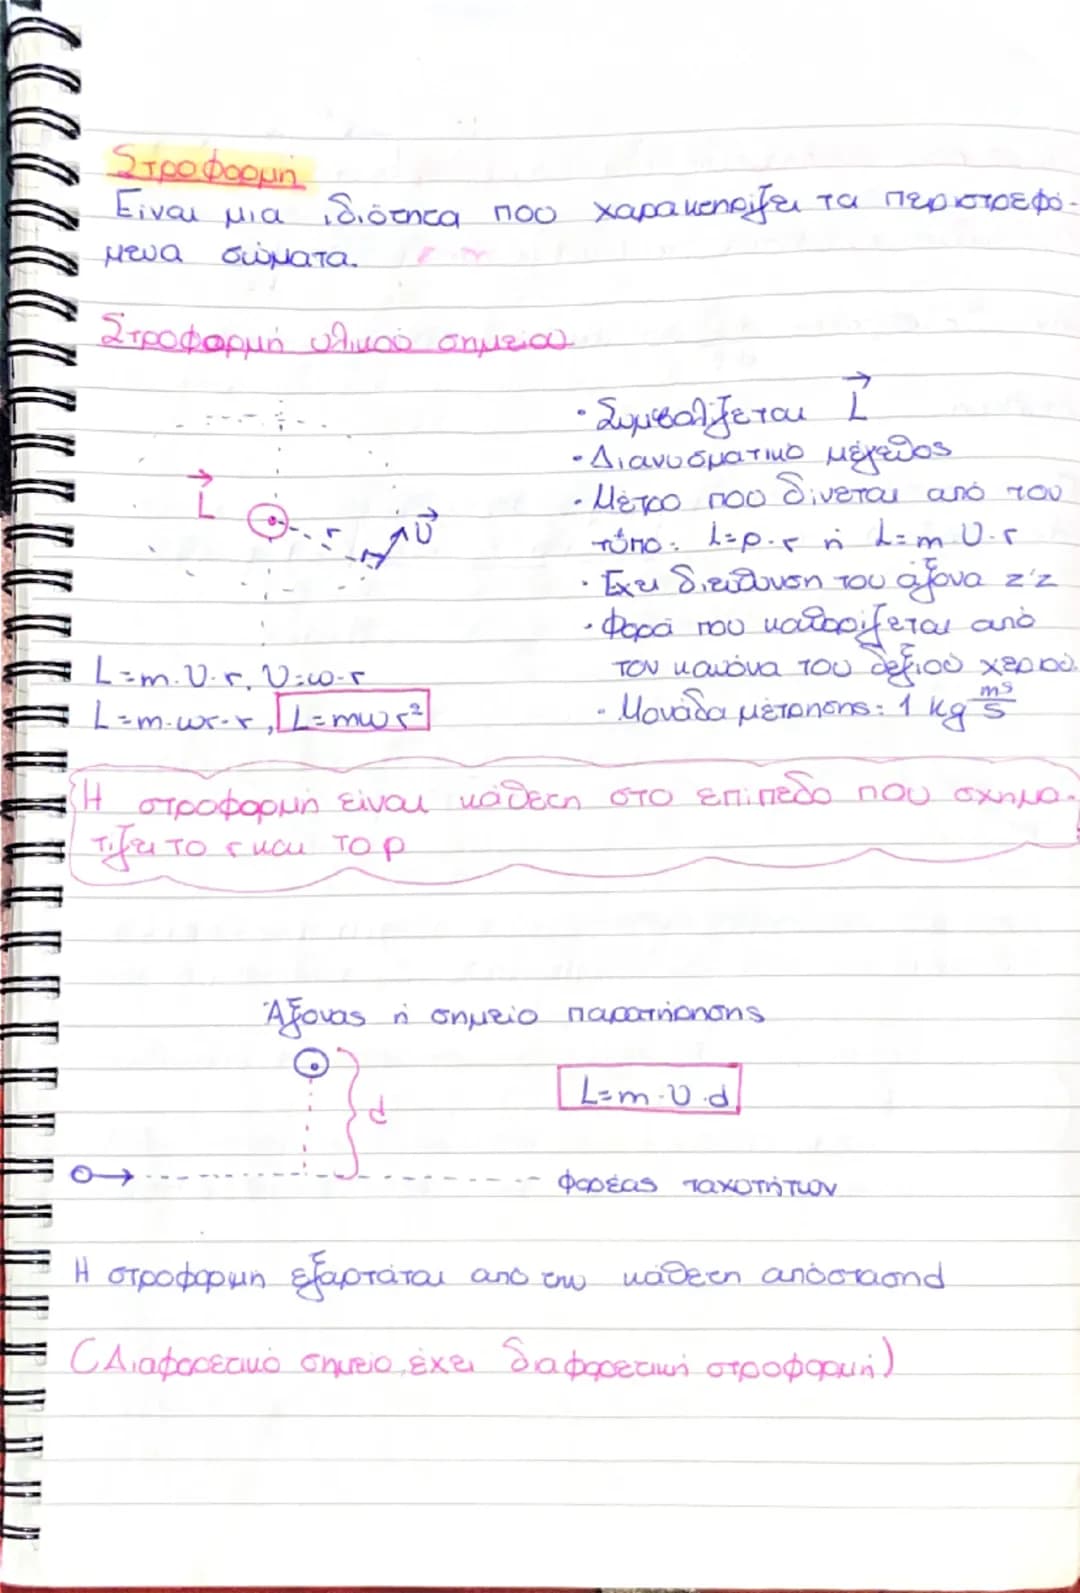 Στροφορμή
Είναι μια ιδιότητα που χαρακτηρίζει τα περιστρεφό-
μενα σώματα.
Στροφορμή υλικού σημείου
· Συμβολίζεται L→
· Διανυσματικό μέγεθος
· Μέτρο που δίνεται από του
τύπο: L=p.r ή L=m.υ.r
· Έχει διεύθυνση του άξονα z'z
· Φορά που καθορίζεται από
τον κανόνα του δεξιού χεριού.
· Μονάδα μέτρησης: 1 kg m²/s
L→
r
υ→
L=m.υ.r, υ=ω.r
L=m.ωr.r, L=mωr²
Η στροφορμή είναι κάθετη στο επίπεδο που σχημα-
τίζει το r και το p
Άξονας ή σημείο παρατήρησης
d
L=m.υ.d
φορέας ταχυτήτων
Η στροφορμή εξαρτάται από την κάθετη απόσταση d
(Διαφορετικό σημείο, έχει διαφορετική στροφορμή)